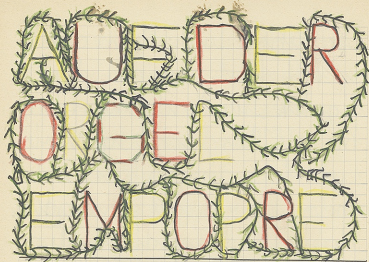 AUF DER
ORGEL
EMPOPRE